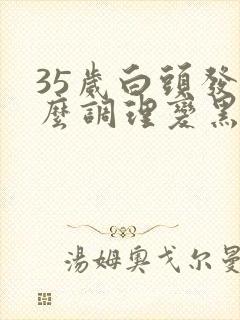 35歲白頭發
麼調理變黑
湯姆奧戈尔曼